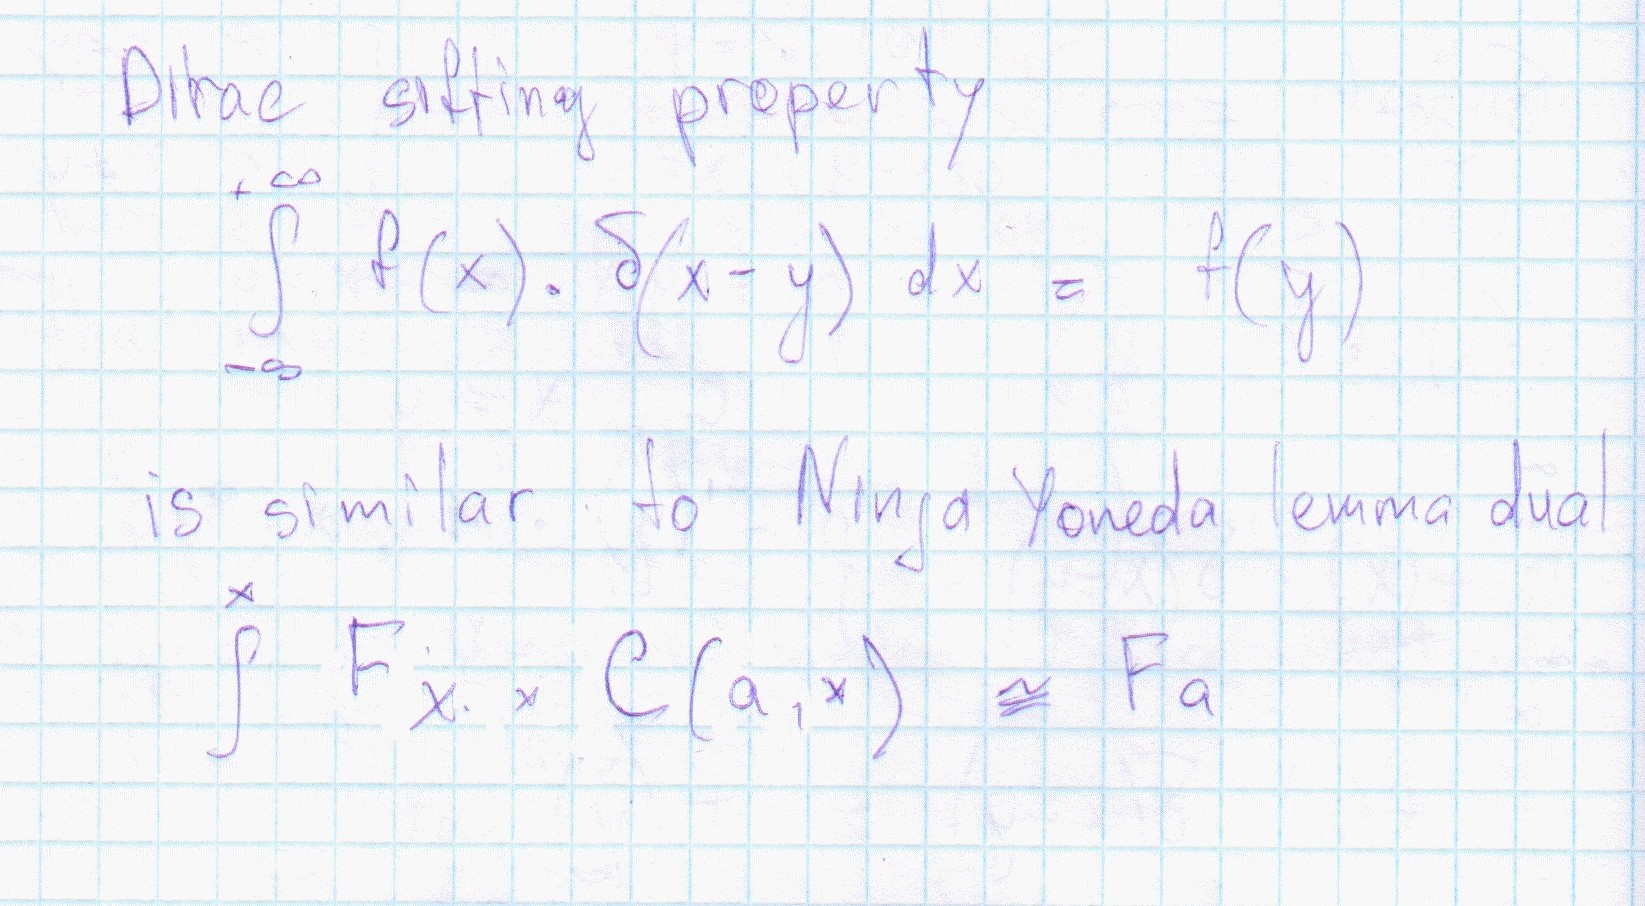 Dirac sifting property
∫_{-∞}^{+∞} f(x) · δ(x - y) dx = f(y)
is similar to Ninja Yoneda lemma dual
∫^x Fx × C(a, x) ≅ Fa